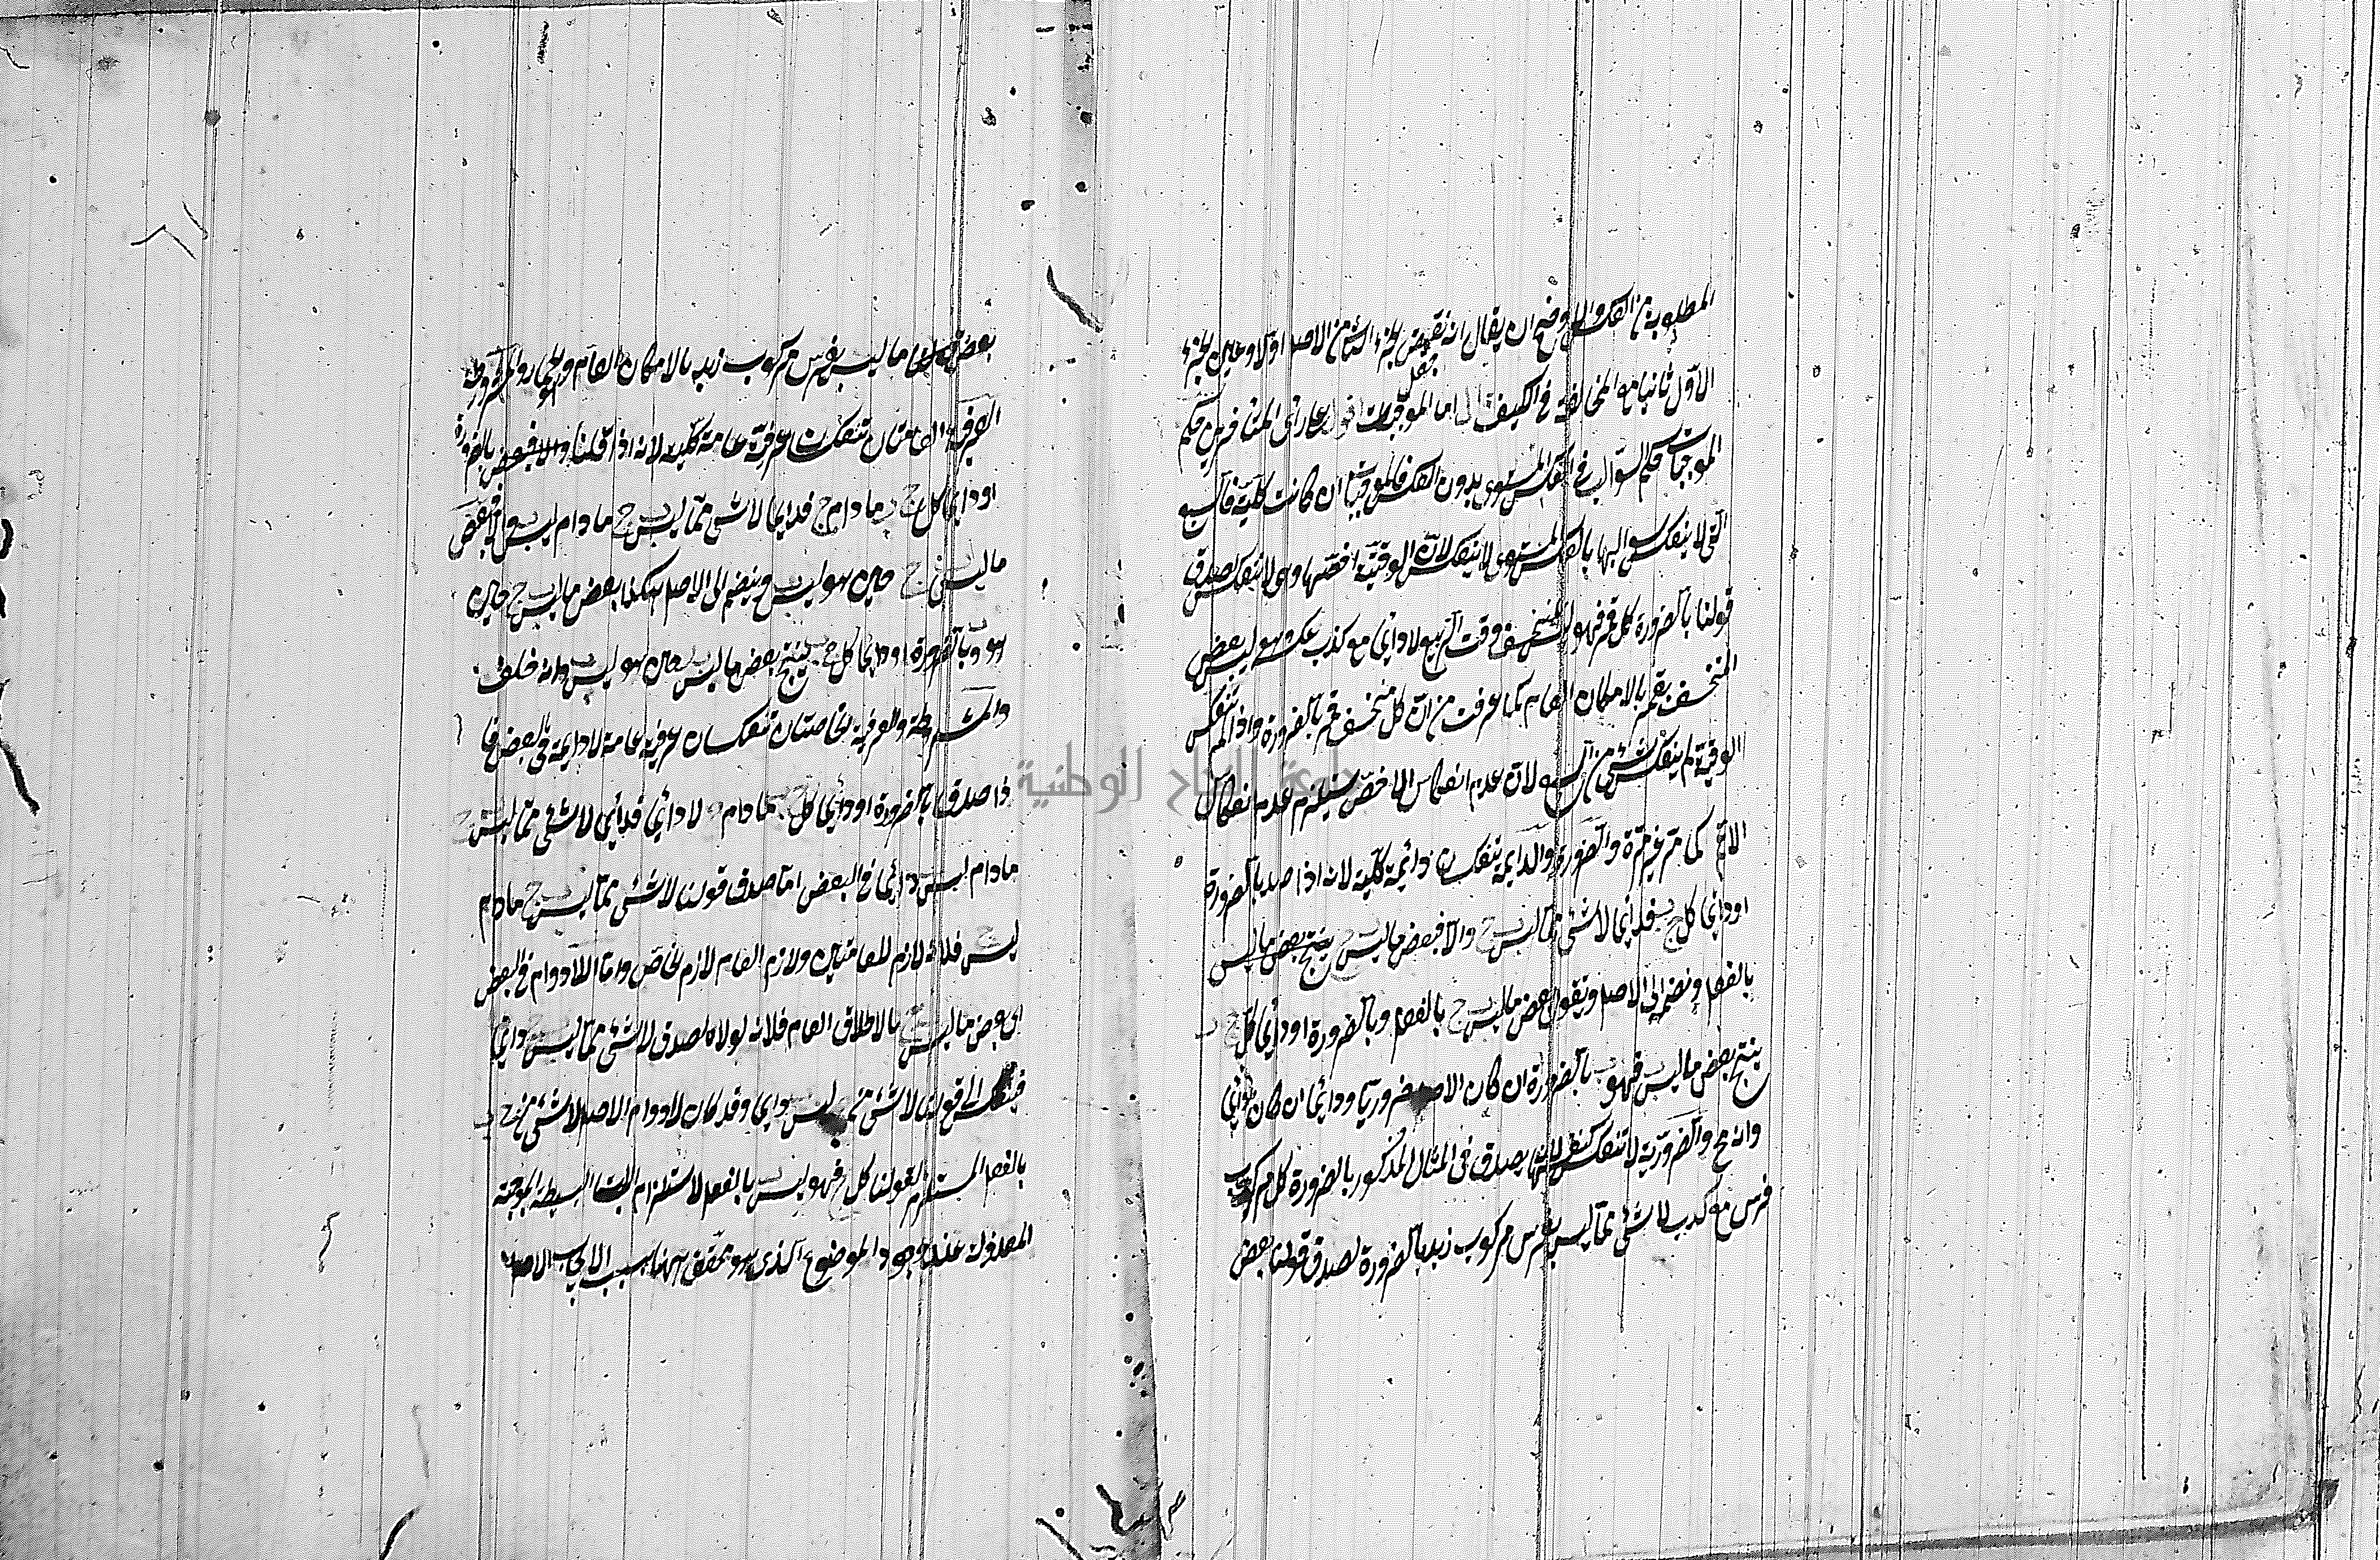 المطلوب من العكس والاوضح ان يقال انه نقيض الجزء الثاني من الاصل اولا وعين الجزء
الاول ثانيا مع المخالفة في الكيف اما الموجبات قول المتأخرين حكم
الموجبات حكم السوالب في العكس المستوي بدون العكس فالموجبات ان كانت كلية فالسبع
التي لا ينعكس سوالبها بالعكس المستوي لا ينعكس لان الوقتية اخصها وهي لا تنعكس لصدق
قولنا بالضرورة كل قمر فهو ليس بمنخسف وقت التربيع لا دائما مع كذب عكسه وهو ليس بعض
المنخسف بقمر بالامكان العام لما عرفت من ان كل منخسف قمر بالضرورة واذا لم تنعكس
الوقتية لم ينعكس شيء من السبع لان عدم انعكاس الاخص يستلزم عدم انعكاس
الاعم كما مر غير مرة والضرورية والدائمة تنعكسان دائمة كلية لانه اذا صدق بالضرورة
او دائما كل ج ب فدائما لا شيء مما ليس ب ج والا فبعض ما ليس ب ج ينتج بعض ما ليس
بالفعل ونضمه الى الاصل ونقول بعض ما ليس ب ج بالفعل وبالضرورة او دائما كل ج ب
ينتج بعض ما ليس ب فهو ب بالضرورة ان كان الاصل ضروريا ودائما ان كان دائما
وانه مح والضرورية لا تنعكس كنفسها لانه يصدق في المثال المذكور بالضرورة كل مركوب
فرس مع كذب لا شيء مما ليس بفرس مركوب زيد بالضرورة لصدق قولنا بعض
بعض ما ليس بفرس مركوب زيد بالامكان العام والمشروطة
والعرفية العامتان تنعكسان عرفية عامة كلية لانه اذا قلنا بالضرورة
او دائما كل ج ب ما دام ج فدائما لا شيء مما ليس ب ج ما دام ليس ب والا فبعض
ما ليس ب ج حين هو ليس ب وينضم الى الاصل هكذا بعض ما ليس ب ج حين
هو ليس ب وبالضرورة او دائما كل ج ب ينتج بعض ما ليس ب ب حين هو ليس ب وانه خلف
والمشروطة والعرفية الخاصتان تنعكسان عرفية عامة لا دائمة في البعض فا
ذا صدق بالضرورة او دائما كل ج ب ما دام ج لا دائما فدائما لا شيء مما ليس ب ج
ما دام ليس ب لا دائما في البعض اما صدق قولنا لا شيء مما ليس ب ج ما دام
ليس ب فلانه لازم للعامتين ولازم العام لازم الخاص واما اللادوام في البعض
اي بعض ما ليس ب ج بالاطلاق العام فلانه لولاه لصدق لا شيء مما ليس ب ج دائما
فينعكس الى قولنا لا شيء من ج ليس ب دائما وقد كان لا دوام الاصل لا شيء من ج ب
بالفعل المستلزم لقولنا كل ج فهو ليس ب بالفعل لاستلزام السالبة البسيطة الموجبة
المعدولة عند وجود الموضوع الذي هو محقق ههنا بسبب ايجاب الاصل
جامعة النجاح الوطنية